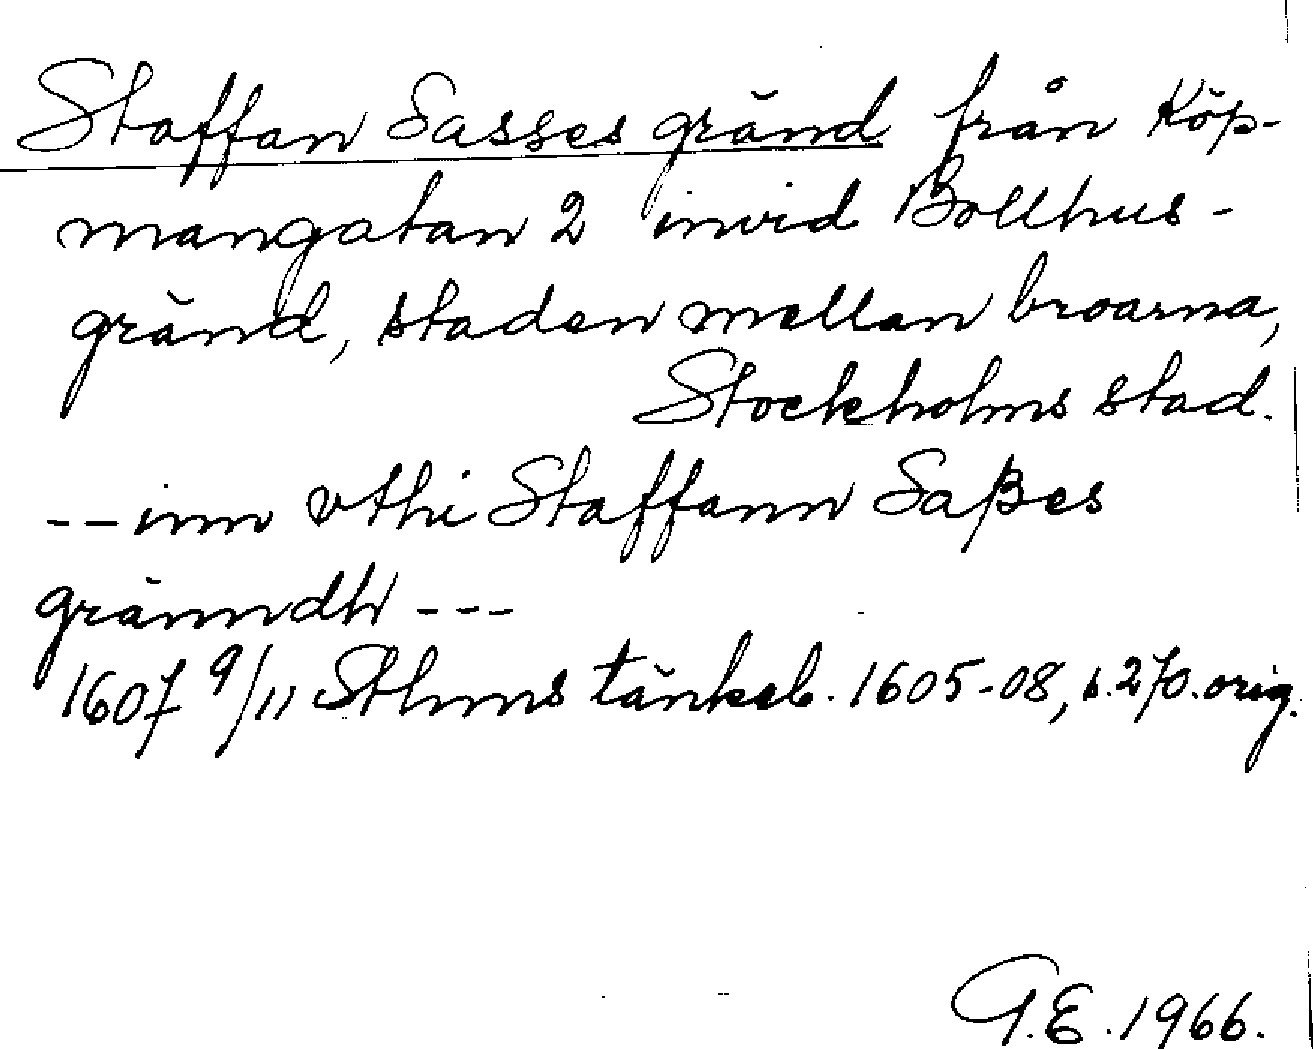 Staffan Sasses gränd från Köp-
mangatan 2 invid Bollhus-
gränd, staden mellan broarna,
Stockholms stad.
--inn vthi Staffann Saßes
gränndh ---
1607 9/11 Sthms tänkeb. 1605-08, s. 270. orig.
G.E. 1966.